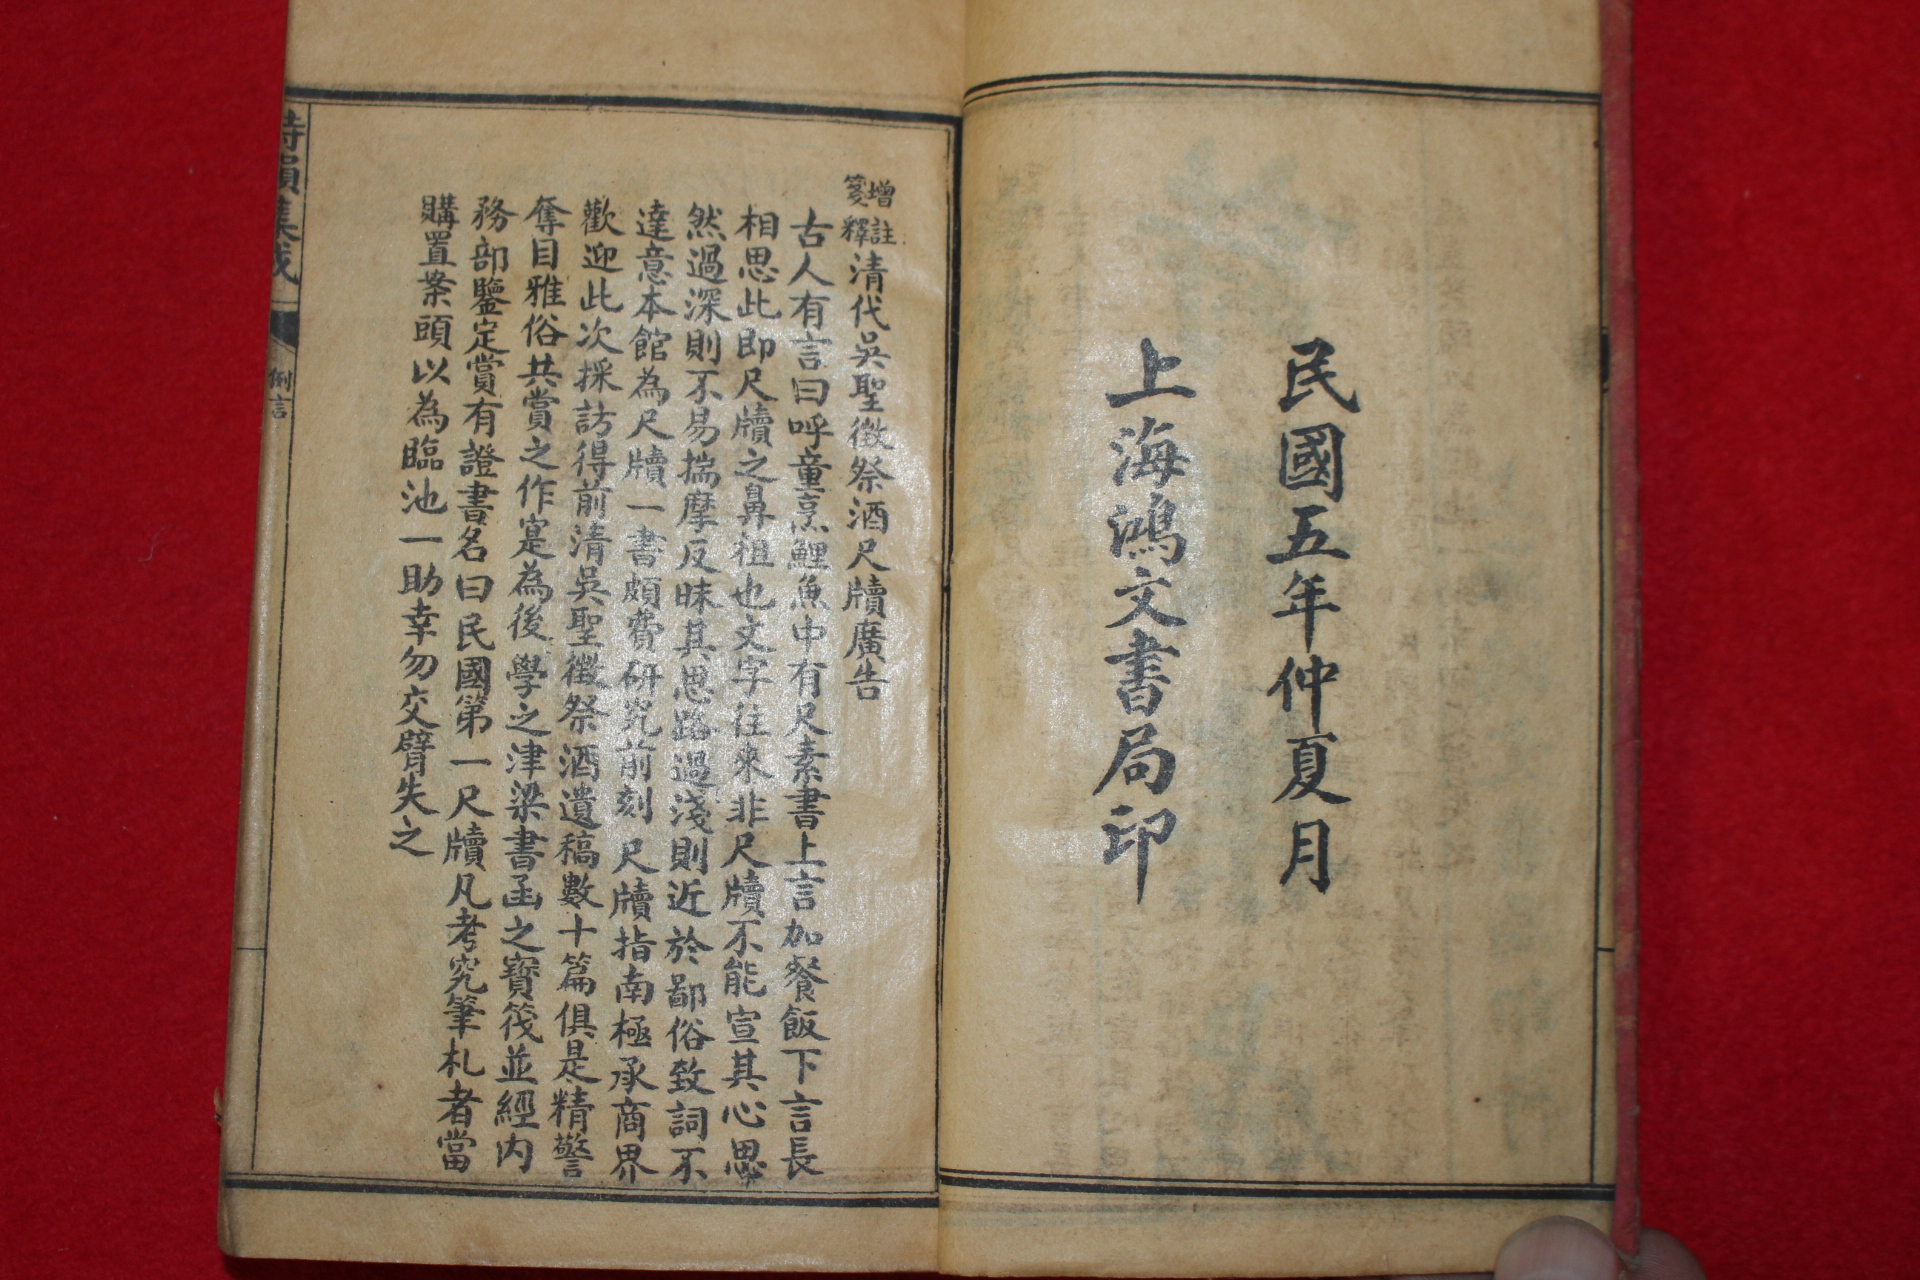 民國五年仲夏月
上海鴻文書局印
增註
箋釋
清代吳聖徵祭酒尺牘廣告
古人有言曰呼童烹鯉魚中有尺素書上言加餐飯下言長
相思此即尺牘之鼻祖也文字往來非尺牘不能宣其心思
然過深則不易揣摩反昧其思路過淺則近於鄙俗致詞不
達意本館為尺牘一書頗費研究前刻尺牘指南極承商界
歡迎此次採訪得前清吳聖徵祭酒遺稿數十篇俱是精警
奪目雅俗共賞之作寔為後學之津梁書函之寶筏並經內
務部鑒定賞有證書名曰民國第一尺牘凡考究筆札者當
購置案頭以為臨池一助幸勿交臂失之
詩韻集成
例言